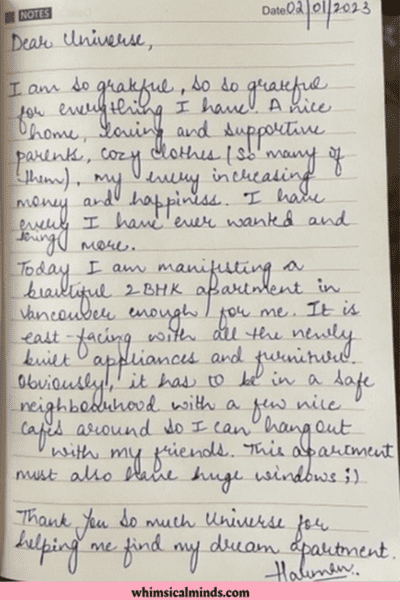 NOTES
Date 02/01/2023
Dear Universe,
I am so grateful, so so grateful
for everything I have. A nice
home, loving and supportive
parents, cozy clothes (so many of
them), my every increasing
money and happiness. I have
every thing I have ever wanted and
more.
Today I am manifesting a
beautiful 2 BHK apartment in
Vancouver enough for me. It is
east-facing with all the newly
built appliances and furniture.
Obviously, it has to be in a safe
neighbourhood with a few nice
cafes around so I can hangout
with my friends. This apartment
must also have huge windows ;)
Thank you so much Universe for
helping me find my dream apartment.
whimsicalminds.com